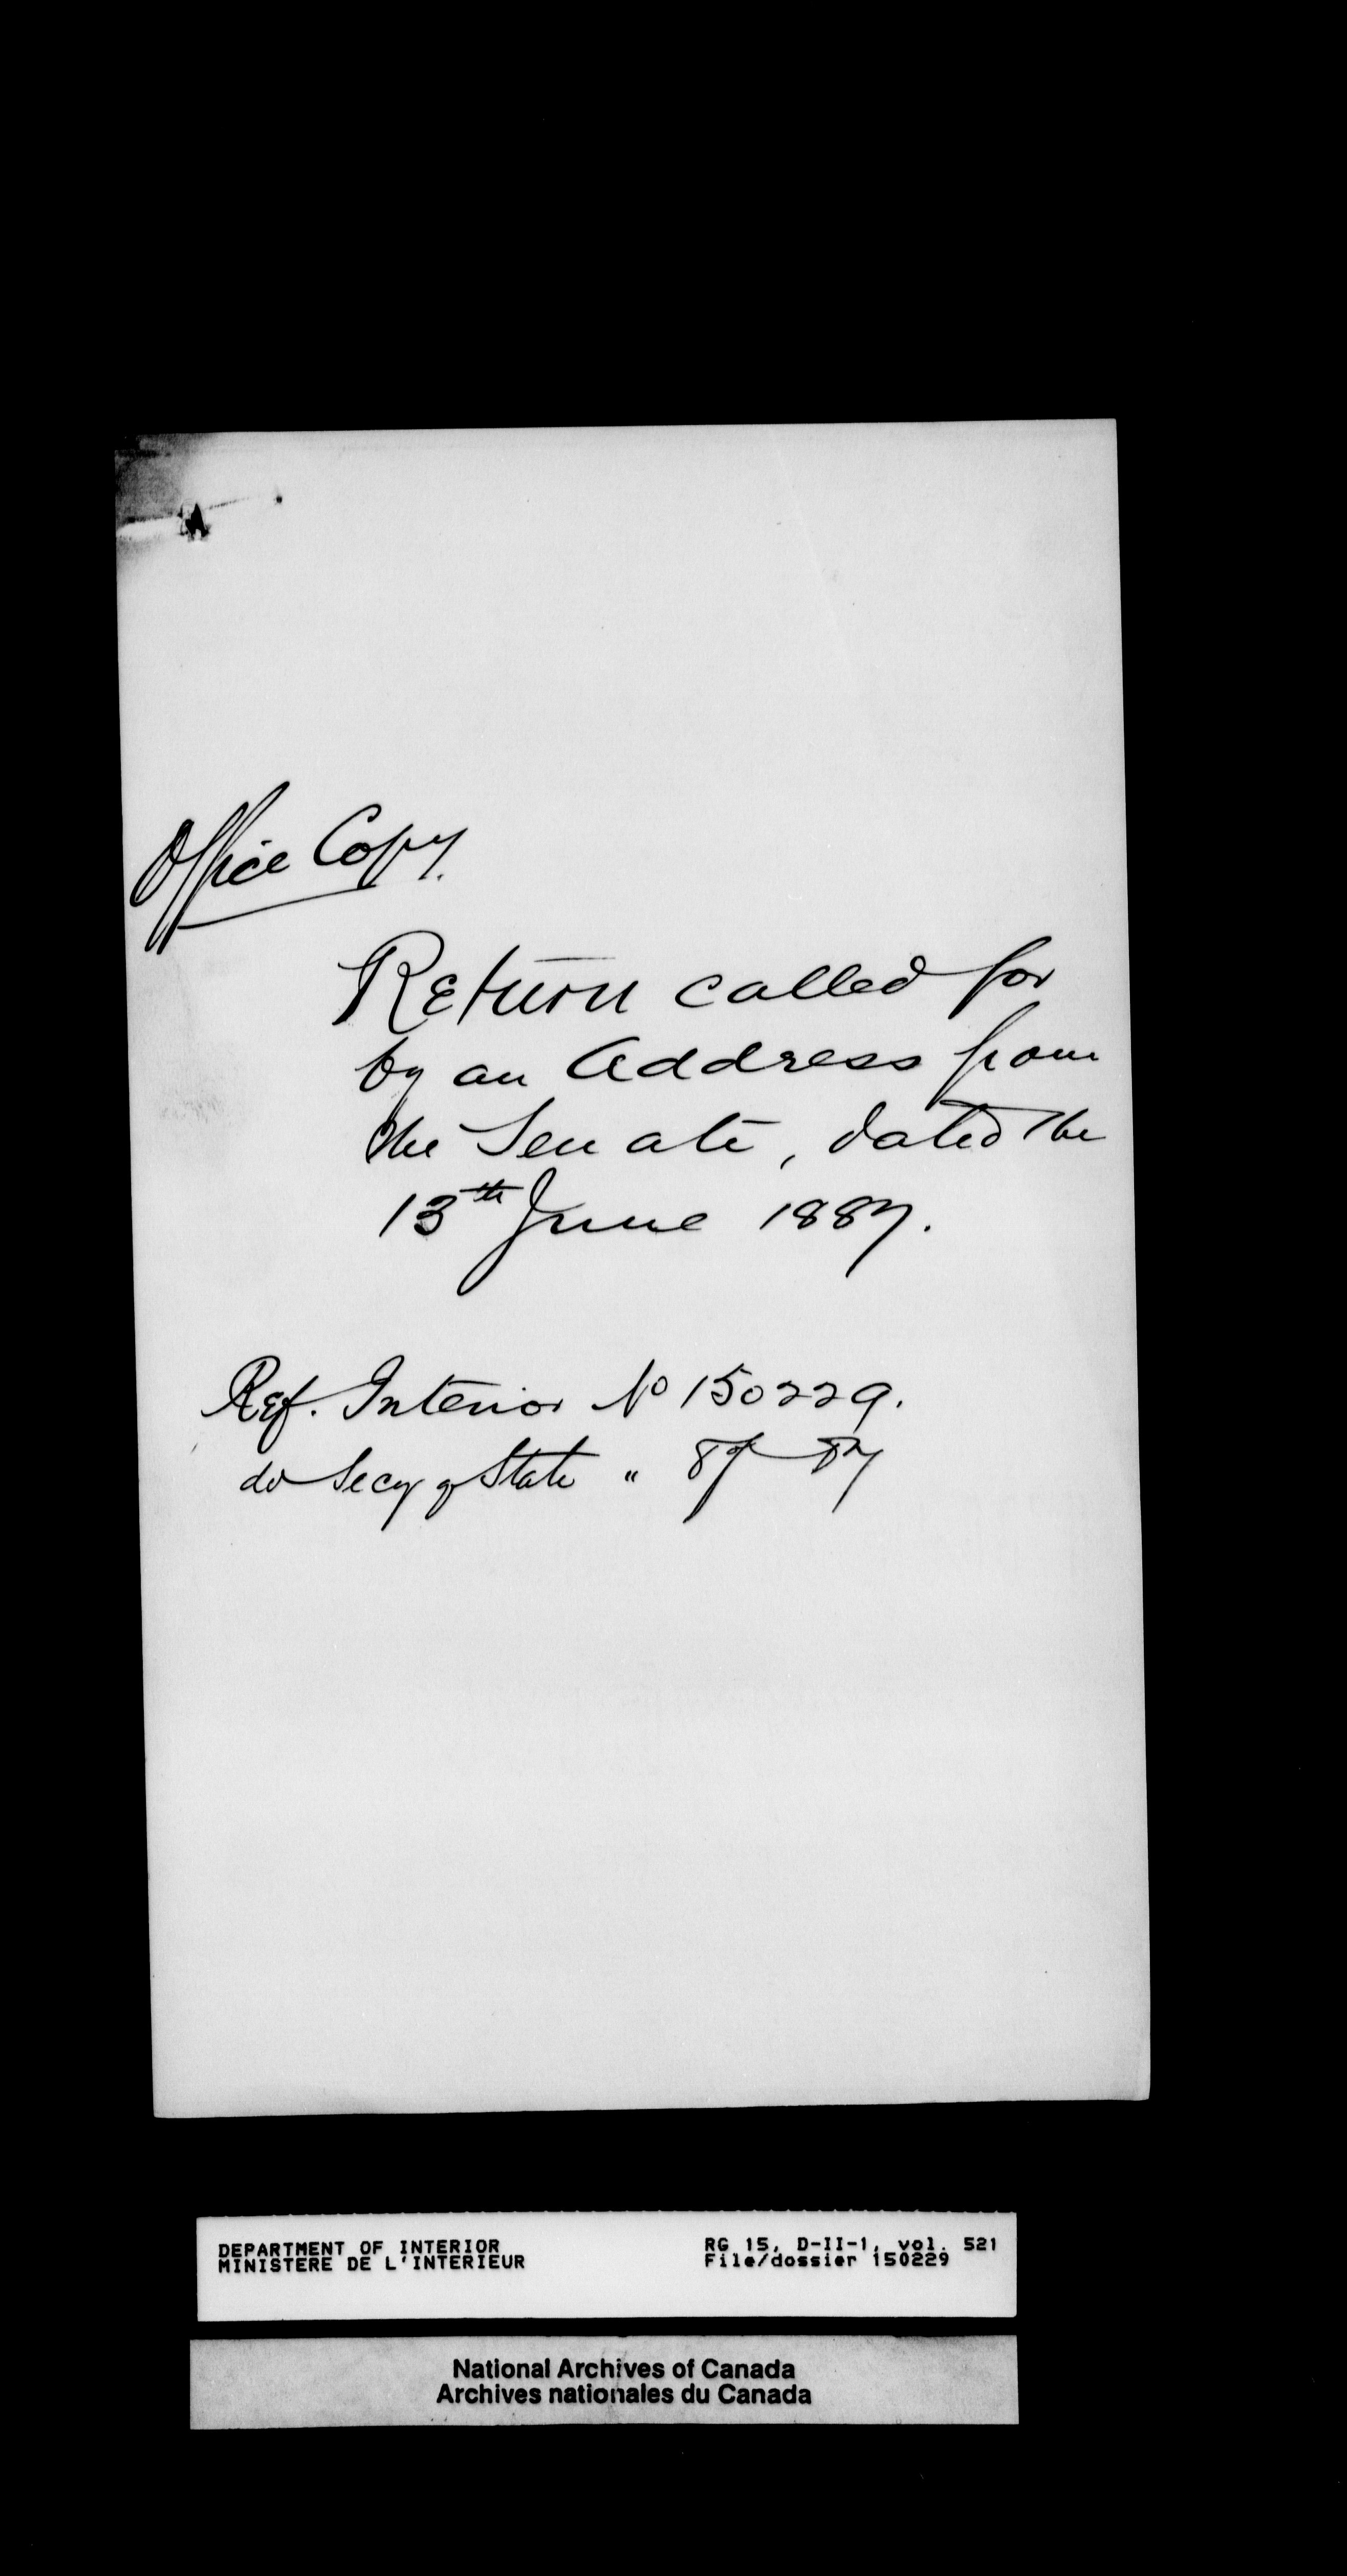 Office Copy.
Return called for
by an Address from
the Senate, dated the
13th June 1887.
Ref. Interior No 150229.
do Secy of State " 87
DEPARTMENT OF INTERIOR
MINISTERE DE L'INTERIEUR
RG 15, D-II-1, vol. 521
File/dossier 150229
National Archives of Canada
Archives nationales du Canada